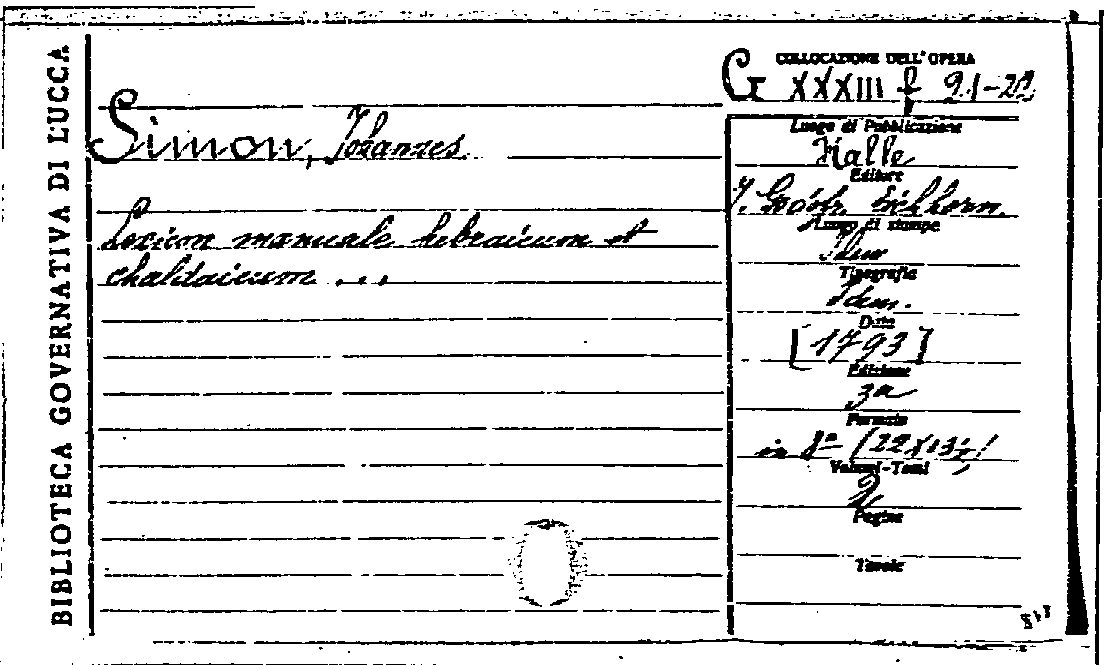 BIBLIOTECA GOVERNATIVA DI LUCCA
COLLOCAZIONE DELL'OPERA
G XXXIII f 21-22
Simon, Johannes
Lexicon manuale hebraicum et
chaldaicum ...
Luogo di Pubblicazione
Halle
Editore
Eichhorn.
Luogo di stampe
Idem
Tipografia
Idem.
Data
[1793]
Edizione
3a
Formato
in 8°
Volumi-Tomi
2
Pagine
Tavole